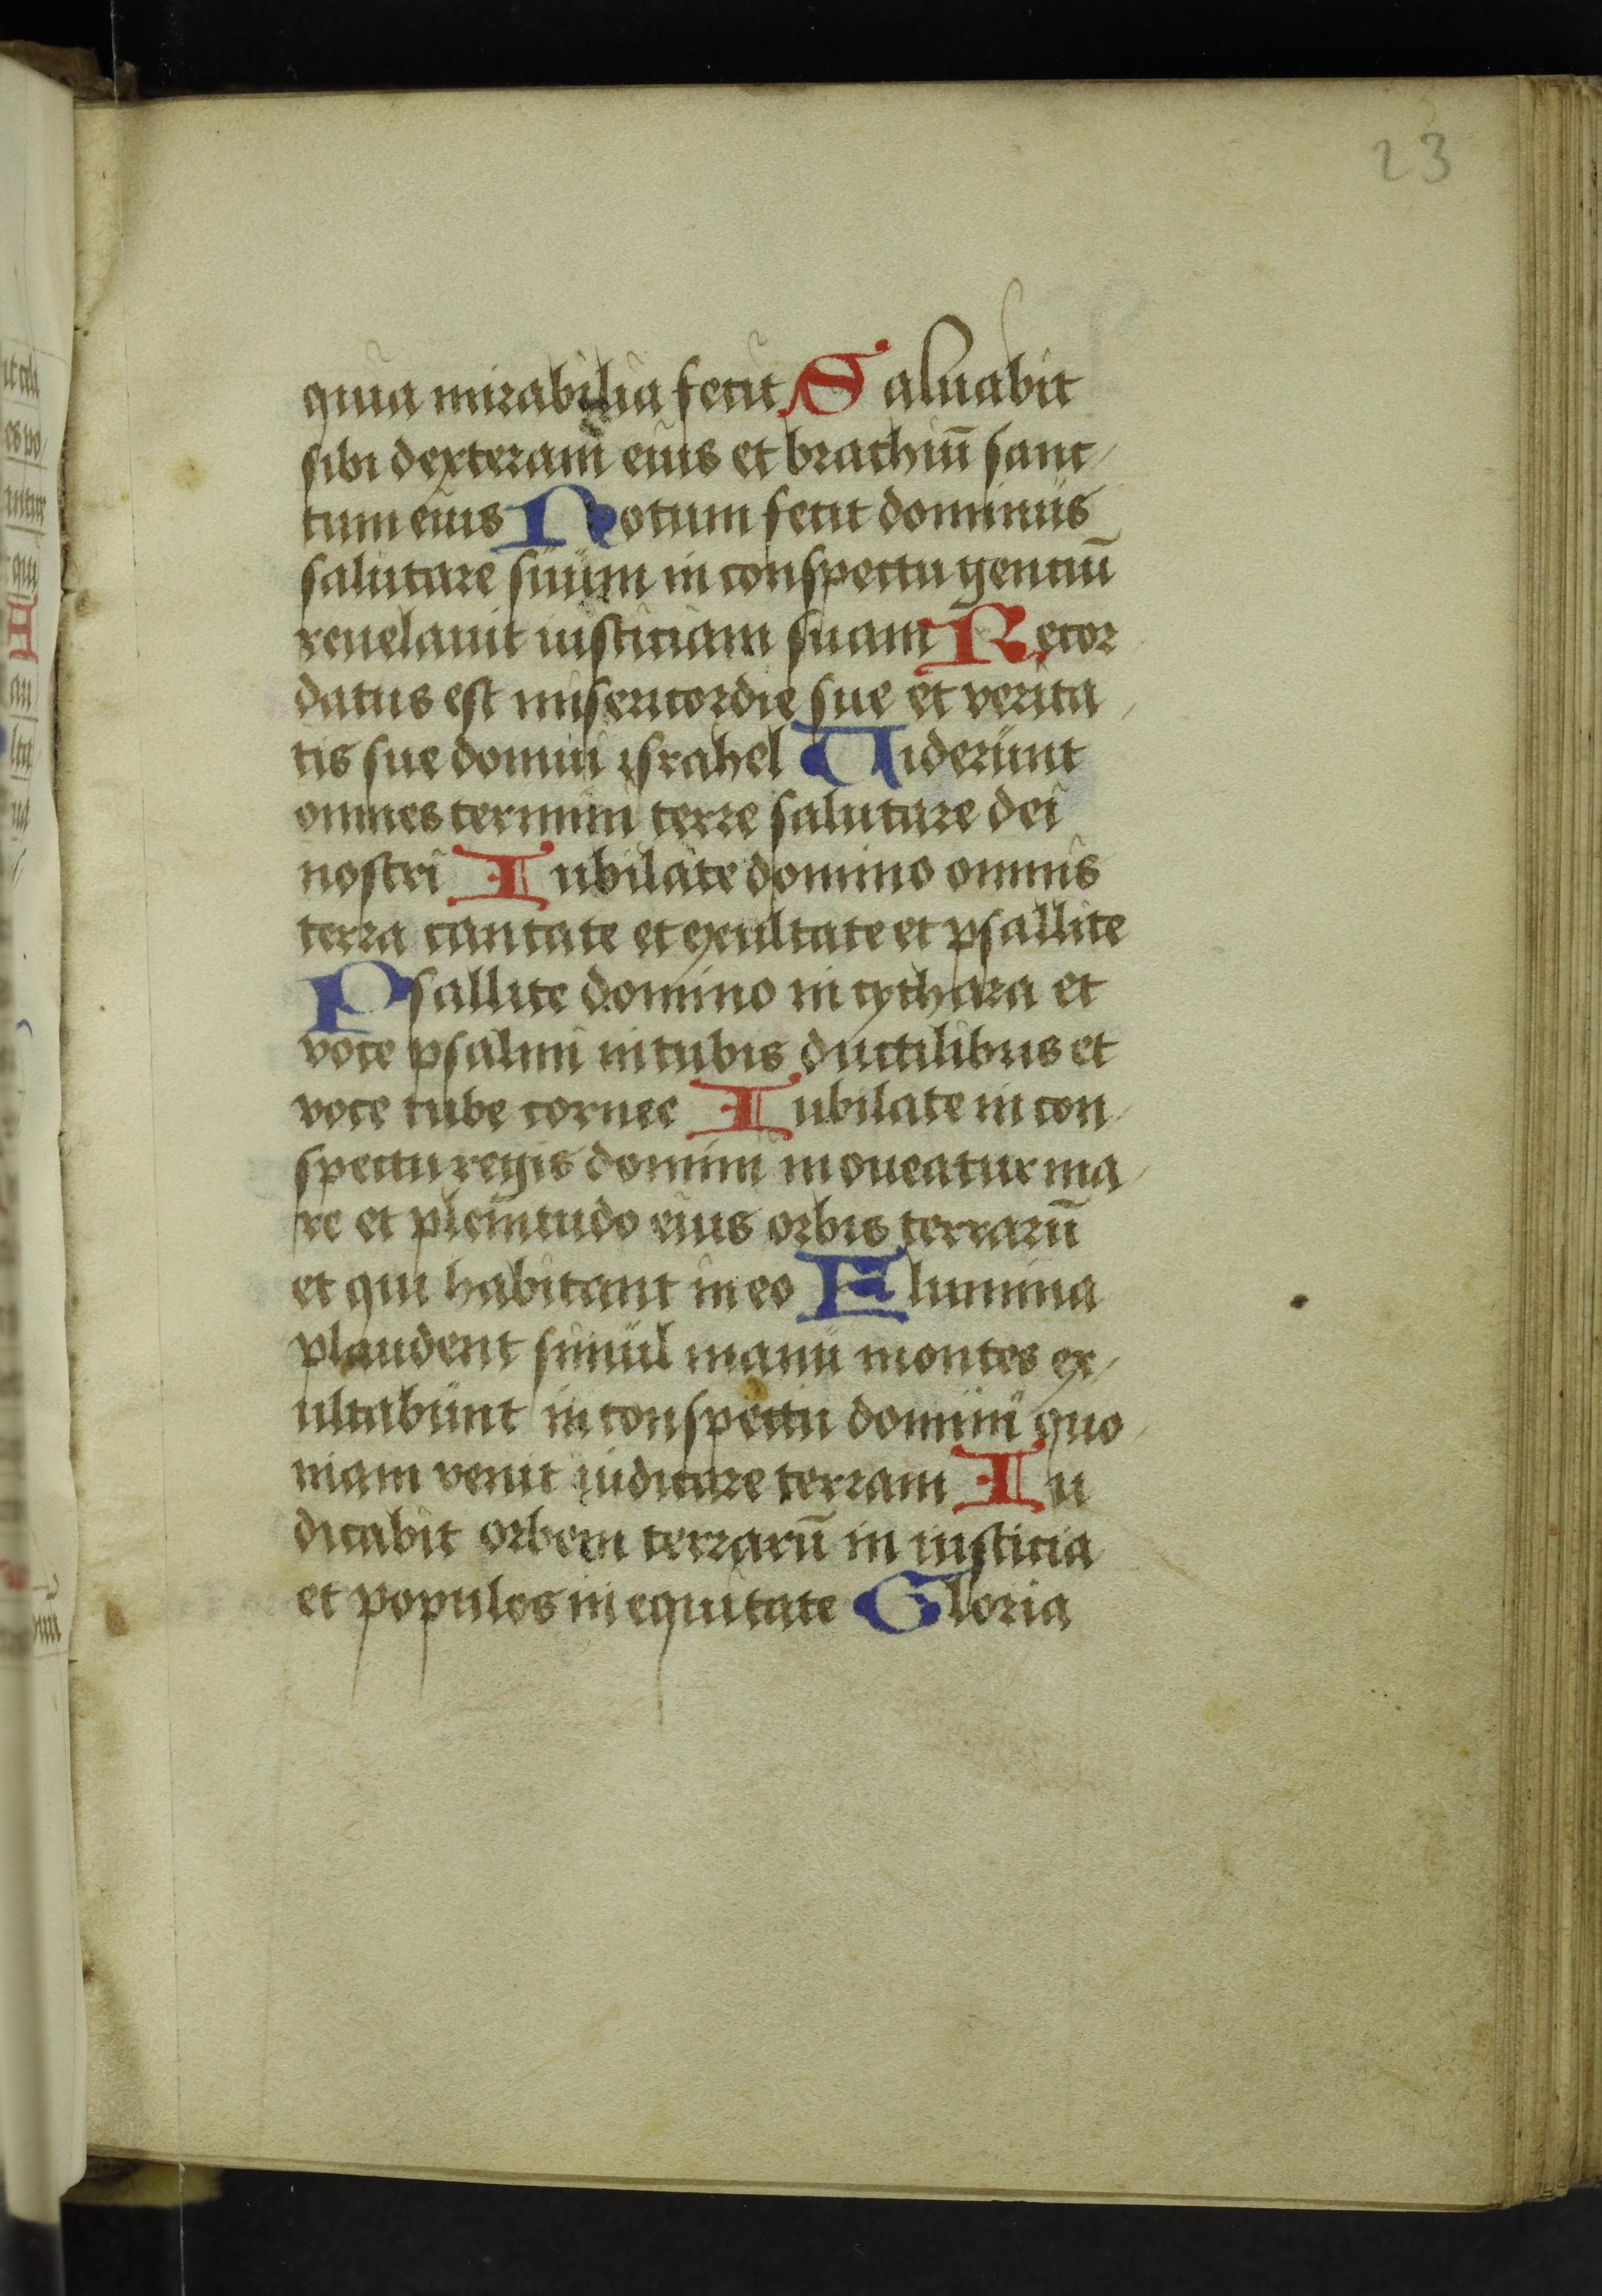 23
quia mirabilia fecit Saluabit
sibi dexteram eius et brachiū sanc/
tum eius Notum fecit dominus
salutare suum in conspectu genciū
reuelauit iusticiam suam Recor
datus est misericordie sue et verita/
tis sue domui israhel Uiderunt
omnes termini terre salutare dei
nostri Iubilate domino omnis
terra cantate et exultate et psallite
Psallite domino in cythara et
voce psalmi in tubis ductilibus et
voce tube cornee Iubilate in con/
spectu regis domini moueatur ma/
re et plenitudo eius orbis terrarū
et qui habitant in eo Flumina
plaudent simul manu montes ex/
ultabunt in conspectu domini quo/
niam venit iudicare terram Iu
dicabit orbem terrarū in iusticia
et populos in equitate Gloria